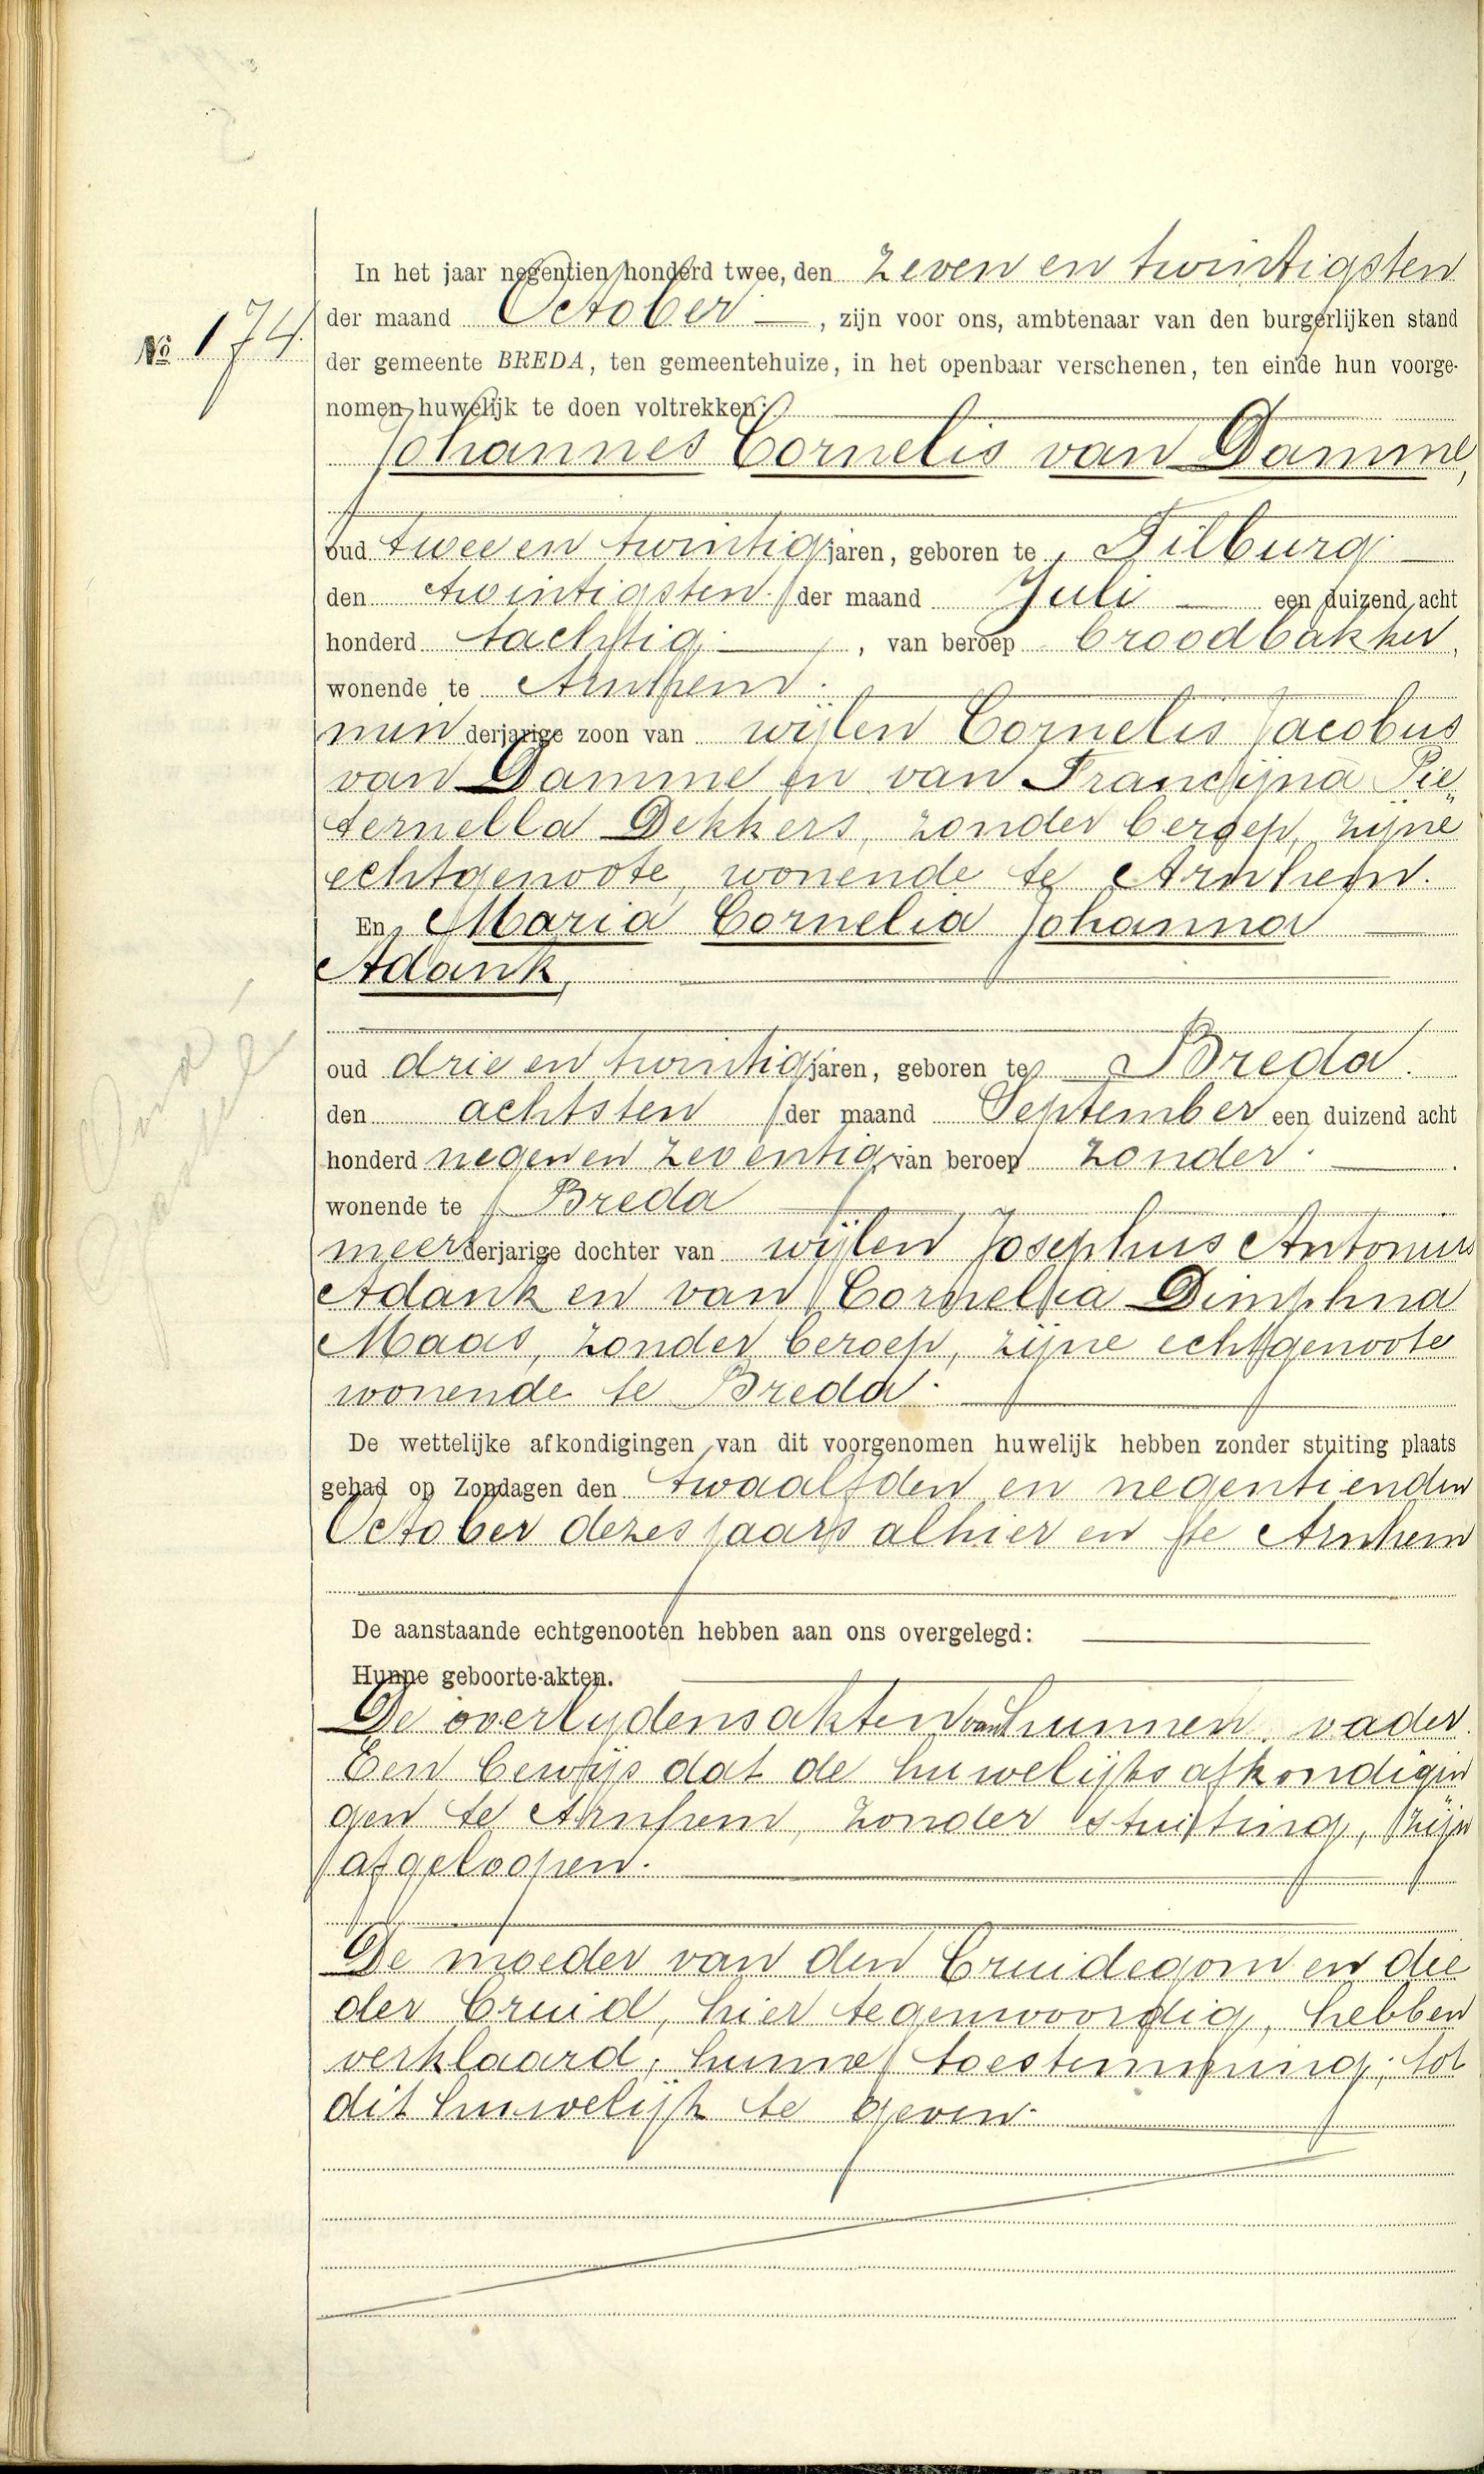 In het jaar negentien honderd twee, den zeven en twintigsten
der maand October, zijn voor ons, ambtenaar van den burgerlijken stand
No 174.
der gemeente BREDA, ten gemeentehuize, in het openbaar verschenen, ten einde hun voorge-
nomen huwelijk te doen voltrekken:
Johannes Cornelis van Damme,
oud twee en twintig jaren, geboren te Tilburg
den twintigsten der maand Juli een duizend acht
honderd tachtig, van beroep broodbakker,
wonende te Arnhem.
minderjarige zoon van wijlen Cornelis Jacobus
van Damme en van Francijna Pie„
ternella Dekkers, zonder beroep, zijne
echtgenoote, wonende te Arnhem.
En Maria Cornelia Johanna
Adank,
oud drie en twintig jaren, geboren te Breda.
den achtsten der maand September een duizend acht
honderd negen en zeventig, van beroep zonder.
wonende te Breda
meerderjarige dochter van wijlen Josephus Antonius
Adank en van Cornelia Dimphna
Maas, zonder beroep, zijne echtgenoote
wonende te Breda.
De wettelijke afkondigingen van dit voorgenomen huwelijk hebben zonder stuiting plaats
gehad op Zondagen den twaalfden en negentienden
October dezes jaars alhier en te Arnhem
De aanstaande echtgenooten hebben aan ons overgelegd:
Hunne geboorte-akten.
De overlydensakten van hunnen vader.
Een bewijs dat de huwelijksafkondigin
gen te Arnhem, zonder stuiting, zijn
afgeloopen.
De moeder van den bruidegom en die
der bruid, hier tegenwoordig, hebben
verklaard, hunne toestemming, tot
dit huwelijk te geven.